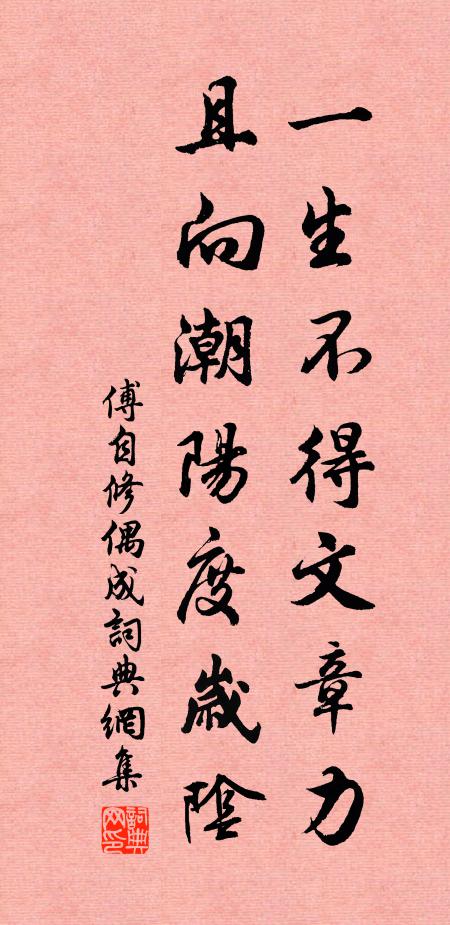 一生不得文章力
且向潮陽度歲陰
傅自修偶成詞典網集
詞典网印